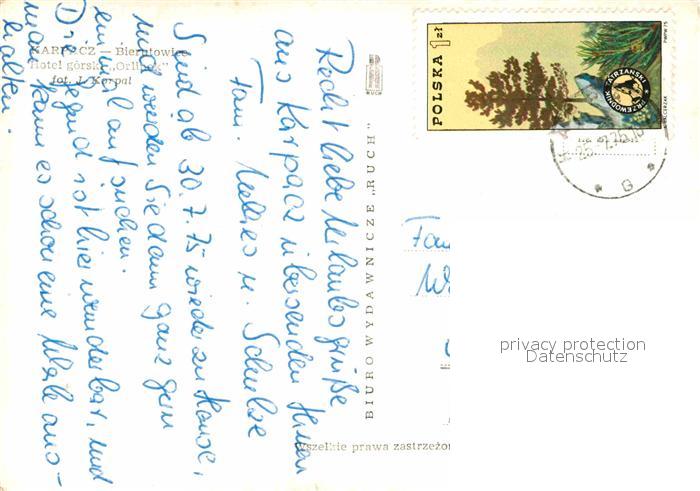 KARPACZ — Bierutowice
Hotel górski „Orlinek"
fot. J. Korpal
Recht liebe Urlaubsgrüße
aus Karpacz übersenden Ihnen
Fam. u. Schulse
Sind ab 30.7.75 wieder zu Hause,
und werden Sie dann ganz gern
einmal aufsuchen.
Die Gegend ist hier wunderbar, und
man kann es schon eine Weile aus-
halten.
BIURO WYDAWNICZE „RUCH"
RUCH
Wszelkie prawa zastrzeżon
POLSKA 1 zł
TATRZAŃSKI
PRZEWODNIK
PWPW 75
25.-7.75.10
G
Fam
privacy protection
Datenschutz